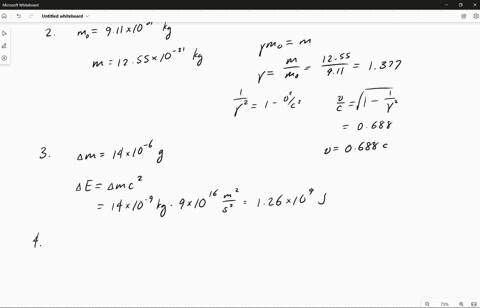 Microsoft Whiteboard
Untitled whiteboard
2. m₀ = 9.11 × 10⁻³¹ kg
m = 12.55 × 10⁻³¹ kg
γm₀ = m
γ = m/m₀ = 12.55/9.11 = 1.377
1/γ² = 1 - v²/c²
v/c = √(1 - 1/γ²)
= 0.688
v = 0.688 c
3. Δm = 14 × 10⁻⁶ g
ΔE = Δmc²
= 14 × 10⁻⁹ kg · 9 × 10¹⁶ m²/s² = 1.26 × 10⁹ J
4.
73%